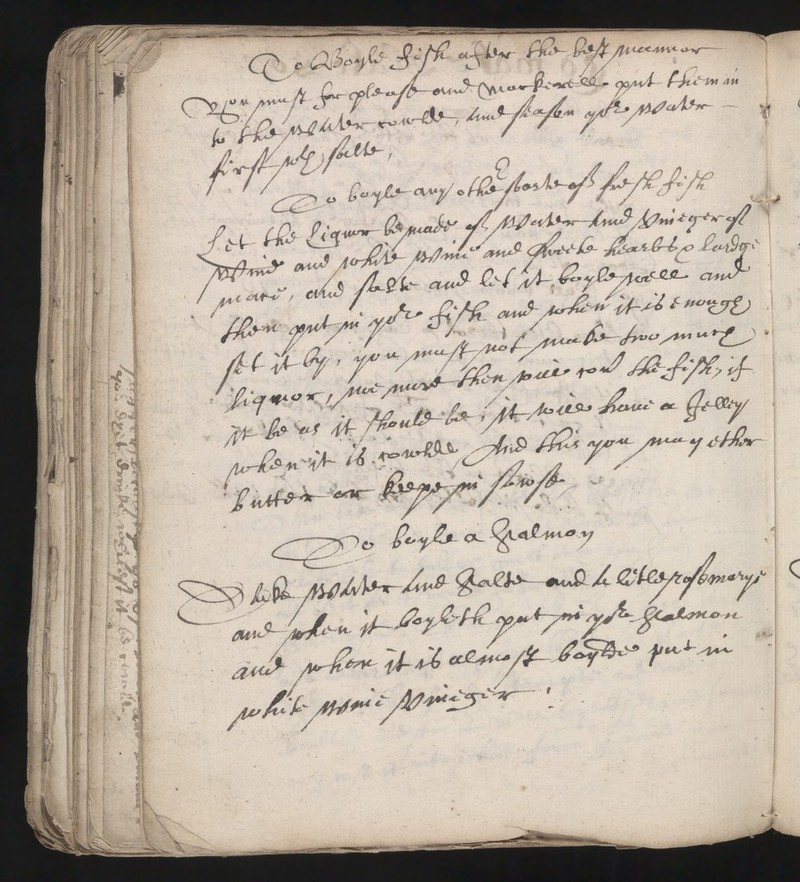 To Boyle fish after the best mannor
You must for please and Mackerell put them in
to the Water cowlde, and season yor Water
first wth salte,
To boyle any other sorte of fresh fish
Let the Liquor be made of Water and Vineger of
Wine and white Wine and sweete hearbes & Lardge
mace, and salte and let it boyle well and
then put in yor fish and when it is enough
set it by, you must not make two much
liquor, noe more then will cover the fish, if
it be as it should be, it will have a Jelley
when it is cowlde, And this you may ether
butter or keepe in sowse,
To boyle a Salmon
Take Water and Salte and a litle rosemarye
and when it boyleth put in yor Salmon
and when it is almost boylde put in
white Wine Vineger.